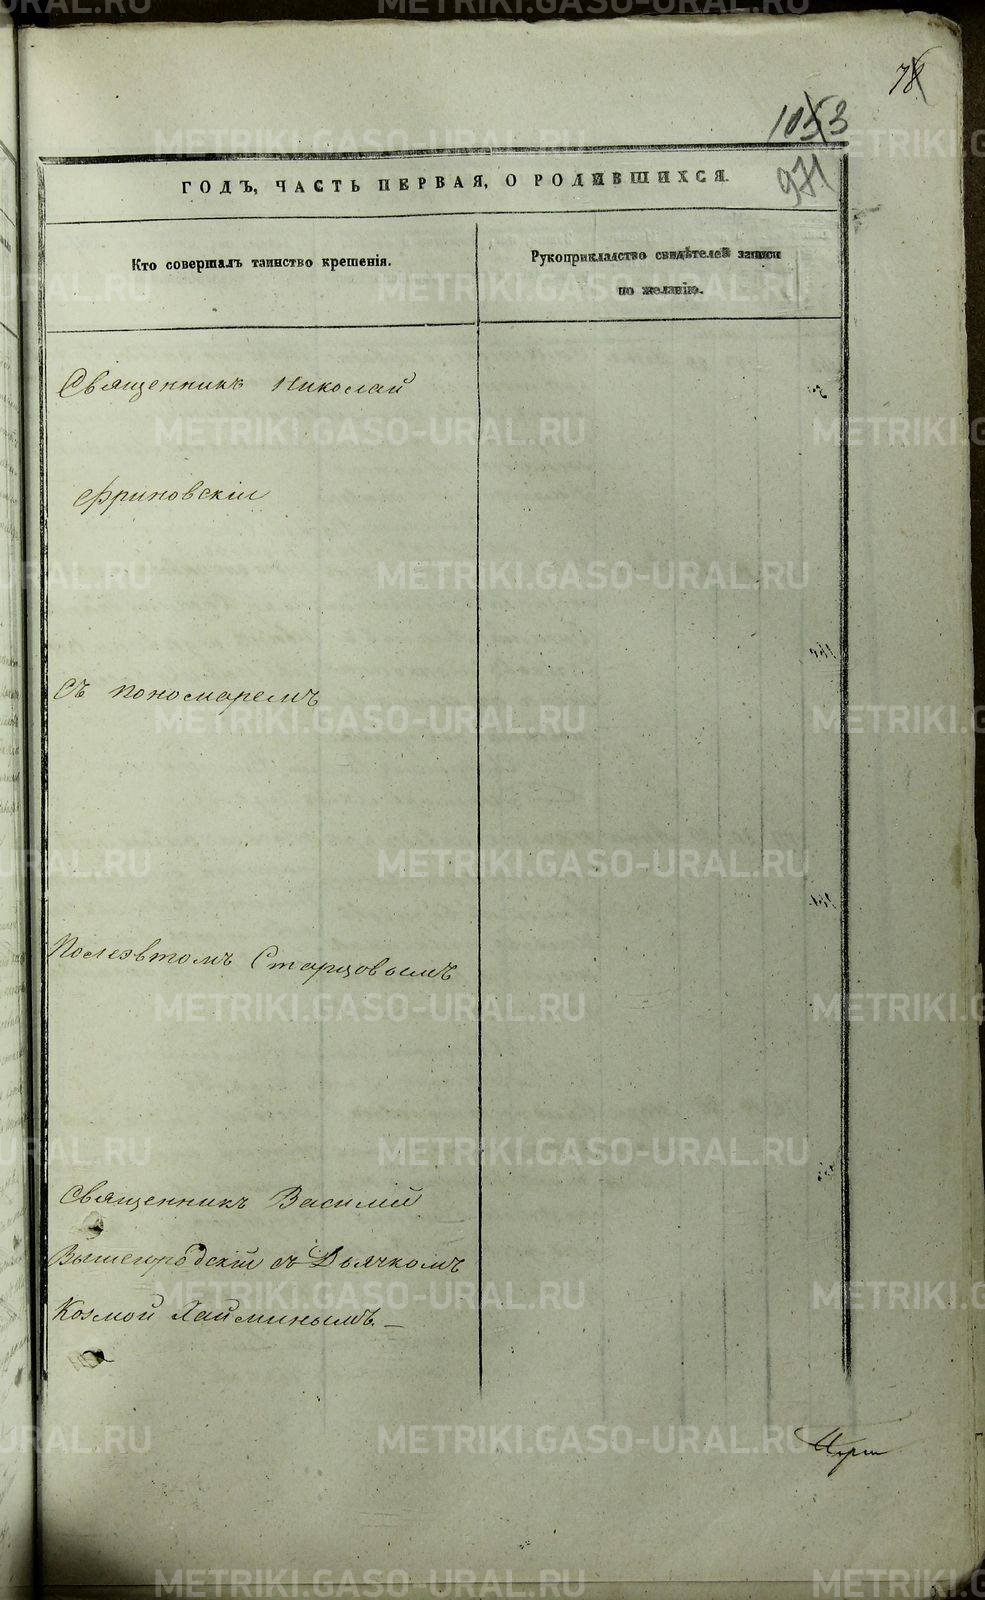 78
1053
971
ГОДЪ, ЧАСТЬ ПЕРВАЯ, О РОДИВШИХСЯ.
Кто совершалъ таинство крещенія.
Рукоприкладство свидѣтелей записи
по желанію.
Священникъ Николай
Фриновскіи
Съ пономаремъ
Полеэвтомъ Старцовымъ
Священникъ Василій
Вышегородскій съ Дьячкомъ
Козмой Хайминымъ. —
METRIKI.GASO-URAL.RU